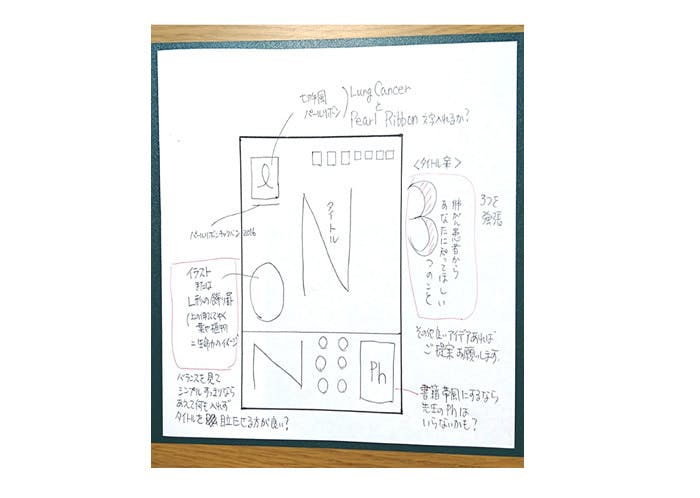 切手風
パールリボン
Lung Cancer
と
Pearl Ribbon 文字入れるか?
l
パールリボンキャンペーン 2016
タイトル
<タイトル案>
肺がん患者から
あなたに知ってほしい
3つのこと
3つを
強張
イラスト
または
L形の飾り罫
葉や植物
=生命力のイメージ
その他良いアイデアあれば
ご提案お願いします。
Ph
バランスを見て
シンプルすっきりなら
あえて何も入れず
タイトルを目立たせる方が良い?
書籍帯風にするなら
先生のPhは
いらないかも?